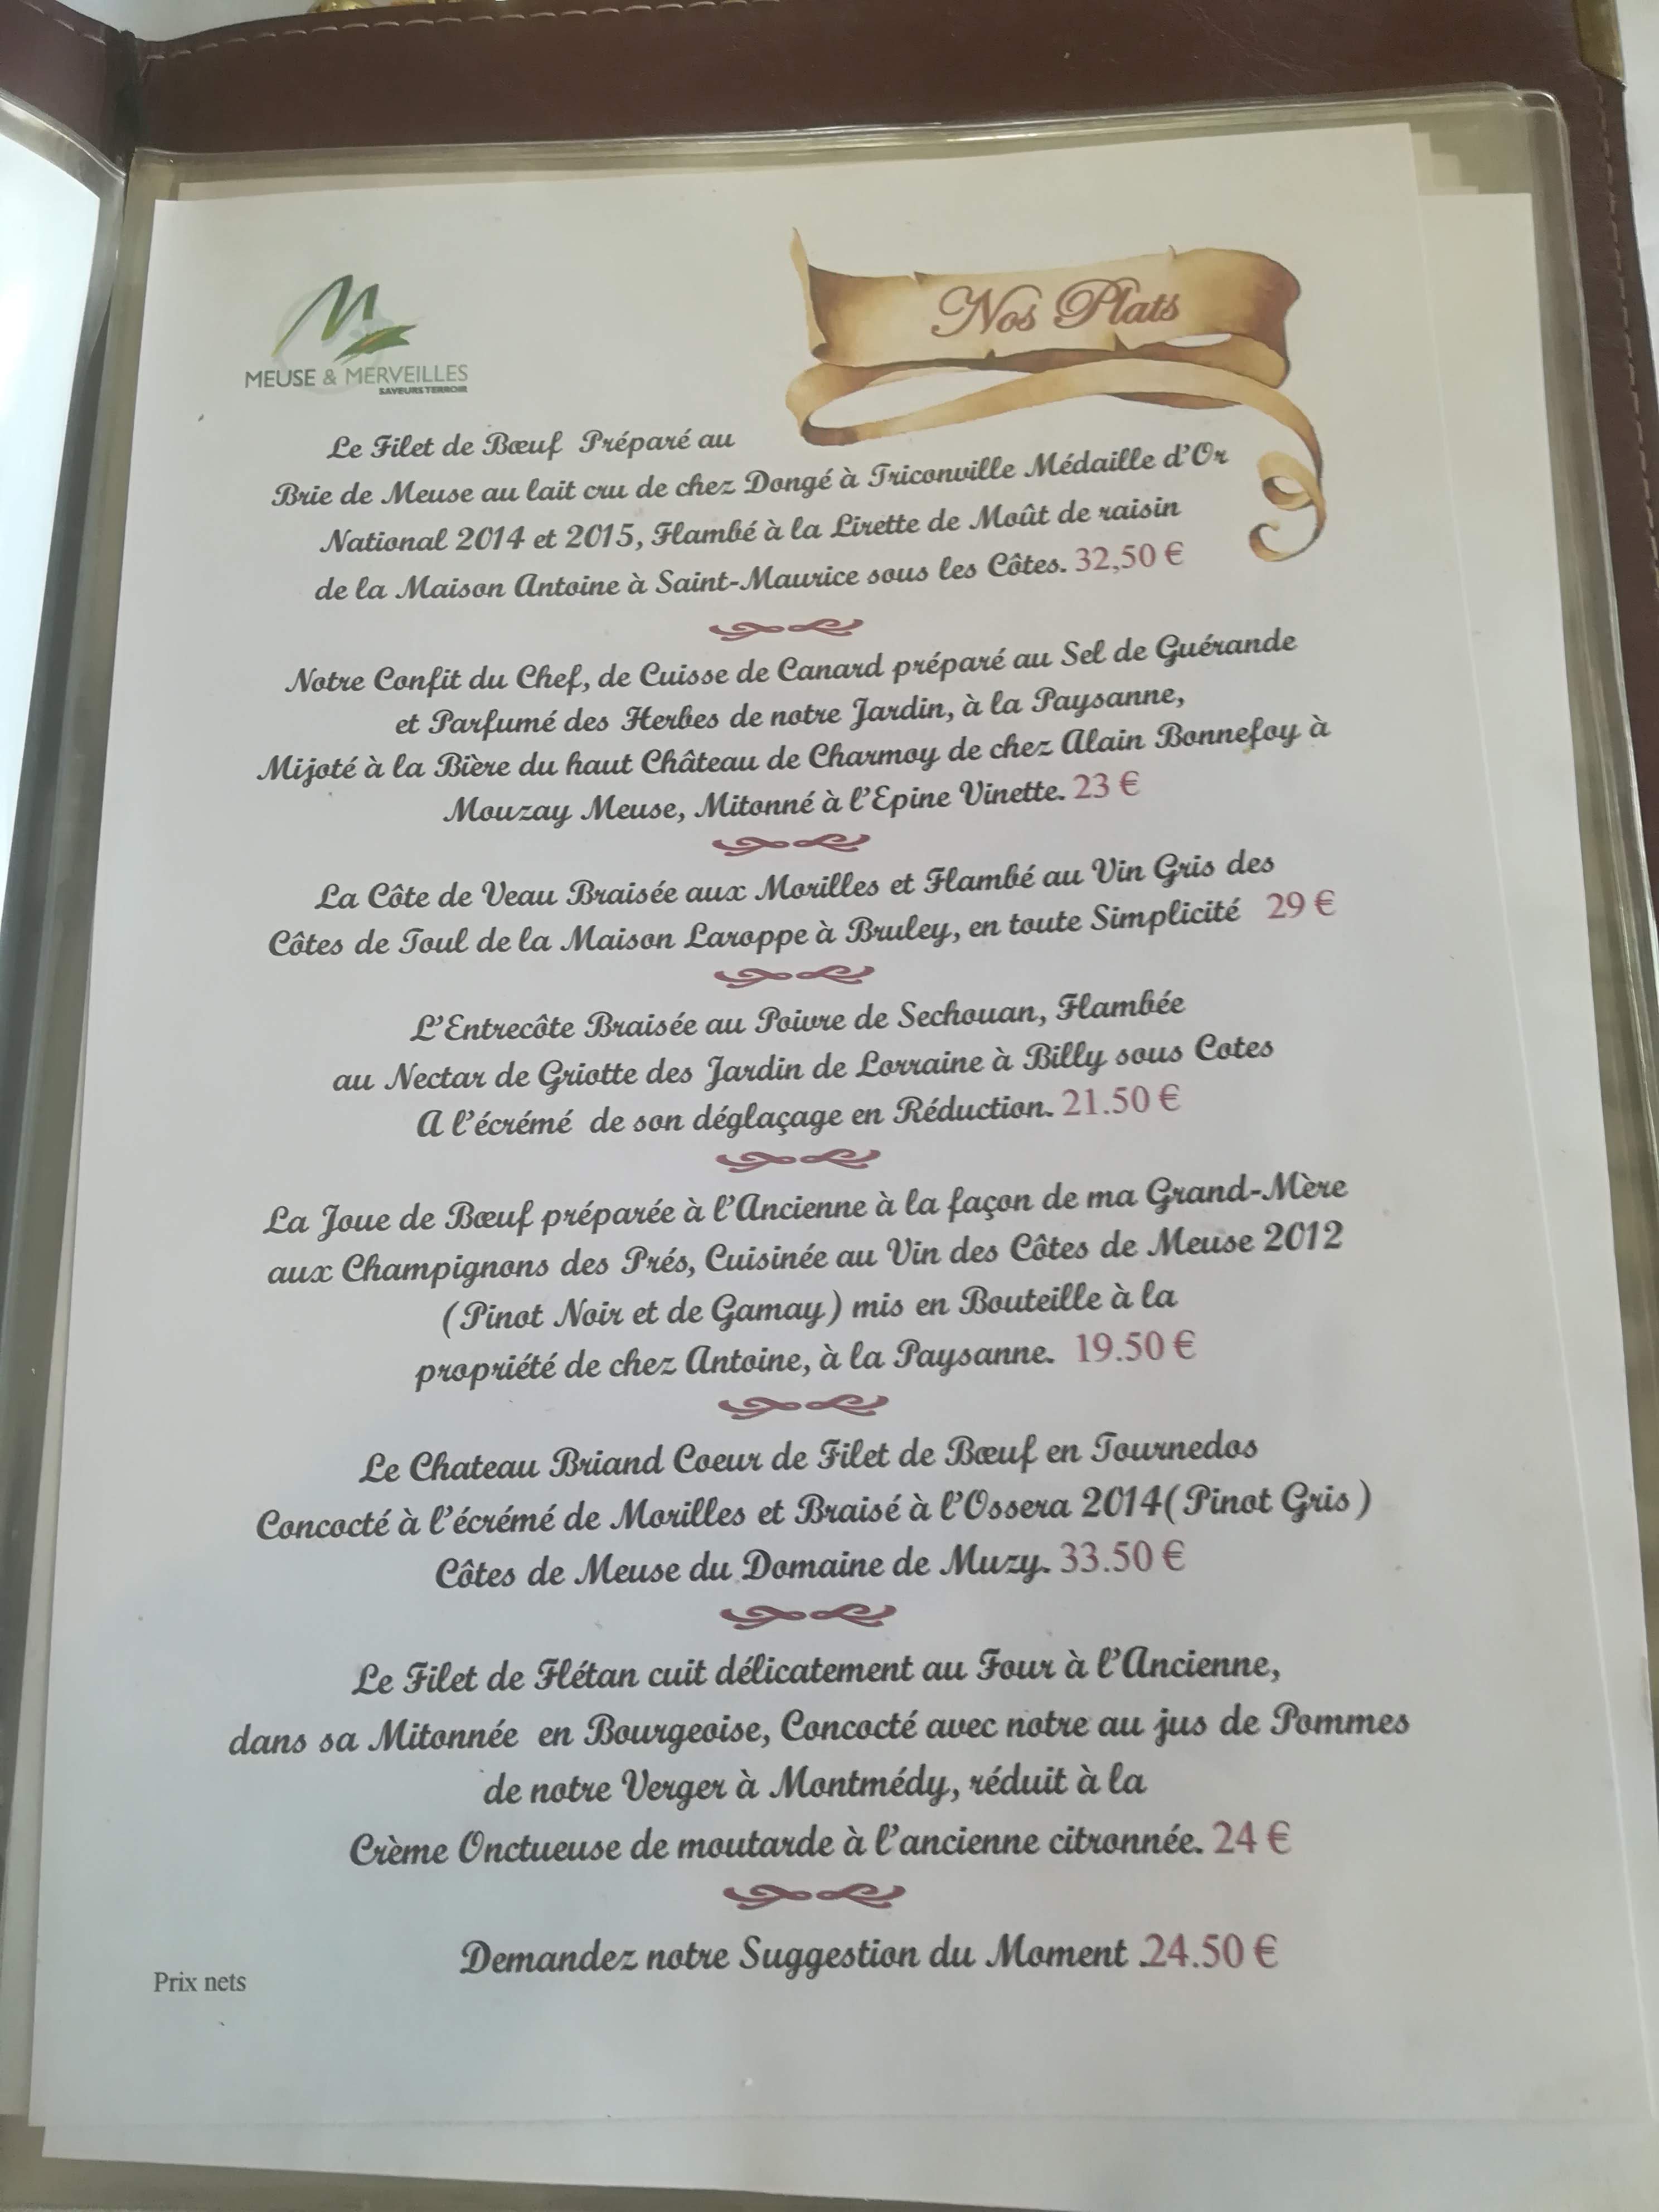 MEUSE & MERVEILLES
SAVEURS TERROIR
Nos Plats
Le Filet de Bœuf Préparé au
Brie de Meuse au lait cru de chez Dongé à Triconville Médaille d'Or
National 2014 et 2015, Flambé à la Lirette de Moût de raisin
de la Maison Antoine à Saint-Maurice sous les Côtes. 32,50 €
Notre Confit du Chef, de Cuisse de Canard préparé au Sel de Guérande
et Parfumé des Herbes de notre Jardin, à la Paysanne,
Mijoté à la Bière du haut Château de Charmoy de chez Alain Bonnefoy à
Mouzay Meuse, Mitonné à l'Epine Vinette. 23 €
La Côte de Veau Braisée aux Morilles et Flambé au Vin Gris des
Côtes de Toul de la Maison Laroppe à Bruley, en toute Simplicité 29 €
L'Entrecôte Braisée au Poivre de Sechouan, Flambée
au Nectar de Griotte des Jardin de Lorraine à Billy sous Cotes
A l'écrémé de son déglaçage en Réduction. 21.50 €
La Joue de Bœuf préparée à l'Ancienne à la façon de ma Grand-Mère
aux Champignons des Prés, Cuisinée au Vin des Côtes de Meuse 2012
(Pinot Noir et de Gamay) mis en Bouteille à la
propriété de chez Antoine, à la Paysanne. 19.50 €
Le Chateau Briand Coeur de Filet de Bœuf en Tournedos
Concocté à l'écrémé de Morilles et Braisé à l'Ossera 2014(Pinot Gris)
Côtes de Meuse du Domaine de Muzy. 33.50 €
Le Filet de Flétan cuit délicatement au Four à l'Ancienne,
dans sa Mitonnée en Bourgeoise, Concocté avec notre au jus de Pommes
de notre Verger à Montmédy, réduit à la
Crème Onctueuse de moutarde à l'ancienne citronnée. 24 €
Demandez notre Suggestion du Moment .24.50 €
Prix nets